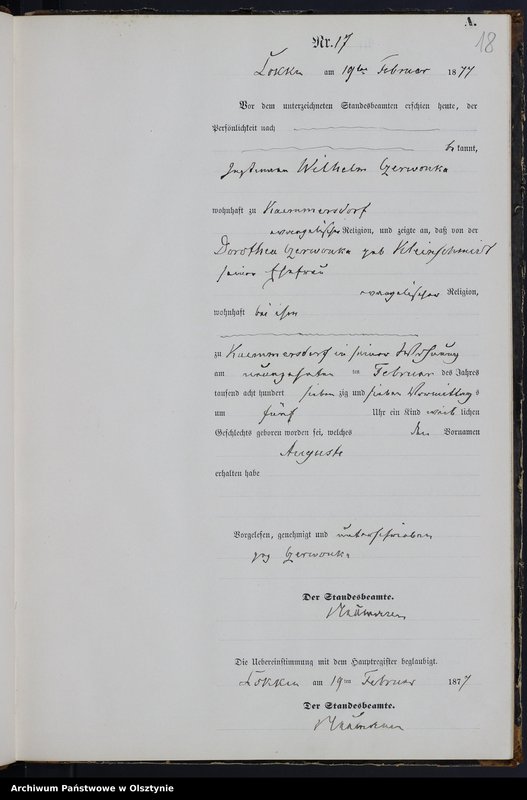 A.
18
Nr. 17
Lokken am 19ten Februar 1877
Vor dem unterzeichneten Standesbeamten erschien heute, der
Persönlichkeit nach
be kannt,
Wilhelm Czerwonka
wohnhaft zu Kaemmersdorf
evangelischer Religion, und zeigte an, daß von der
Dorothea Czerwonka geb Kleinschmidt
seiner Ehefrau
evangelischer Religion,
wohnhaft bei ihm
zu Kaemmersdorf in seiner Wohnung
am neunzehnten ten Februar des Jahres
tausend acht hundert sieben zig und sieben Vormittag s
um fünf Uhr ein Kind weib lichen
Geschlechts geboren worden sei, welches den Vornamen
Auguste
erhalten habe
Vorgelesen, genehmigt und unterschrieben
gez Czerwonka
Der Standesbeamte.
Die Uebereinstimmung mit dem Hauptregister beglaubigt.
Lokken am 19ten Februar 1877
Der Standesbeamte.
Archiwum Państwowe w Olsztynie